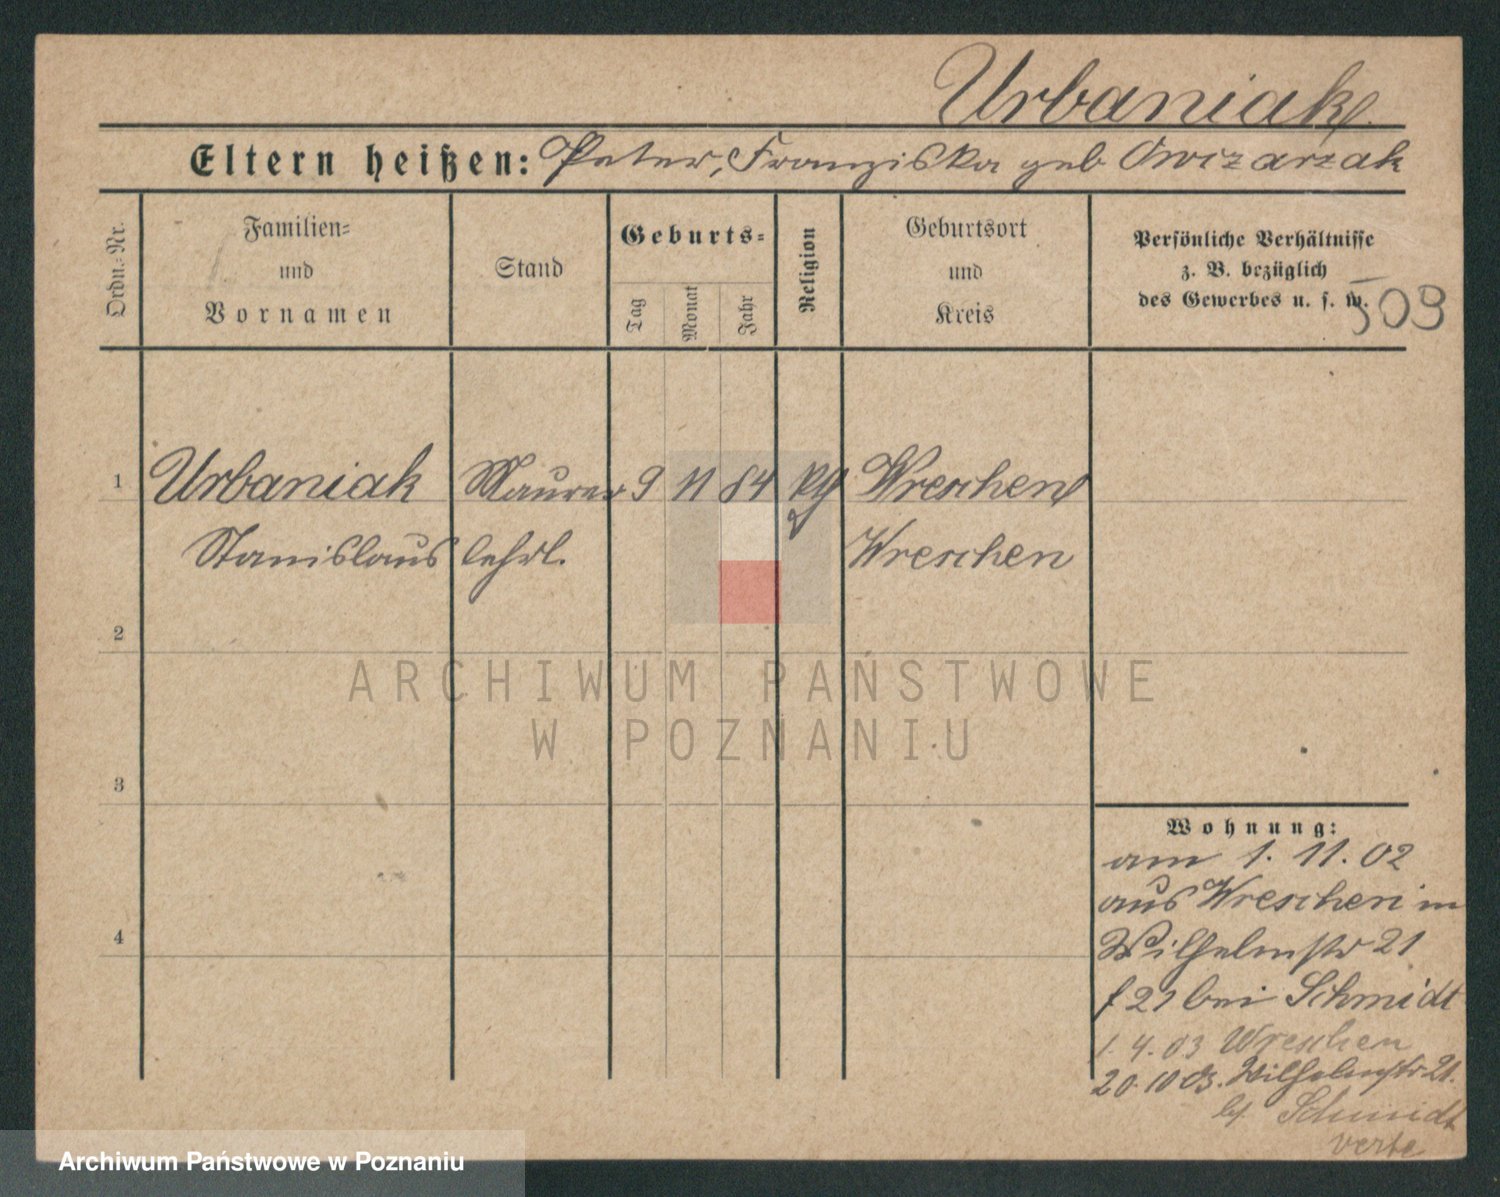 Urbaniak
Eltern heißen: Peter, Franziska geb Owizarzak
Ordn.-Nr.
Familien-
und
Vornamen
Stand
Geburts-
Tag
Monat
Jahr
Religion
Geburtsort
und
Kreis
Persönliche Verhältnisse
z. B. bezüglich
des Gewerbes u. s. w.
509
1 Urbaniak Maurer 9 11 84 Wreschen
Stanislaus lehrl. Wreschen
2
3
4
Wohnung:
am 1. 11. 02
aus Wreschen in
Wilhelmstr 21
21 bei Schmidt
1. 4. 03 Wreschen
20. 10 03. Wilhelmstr 21.
Schmidt
verte
ARCHIWUM PAŃSTWOWE
W POZNANIU
Archiwum Państwowe w Poznaniu